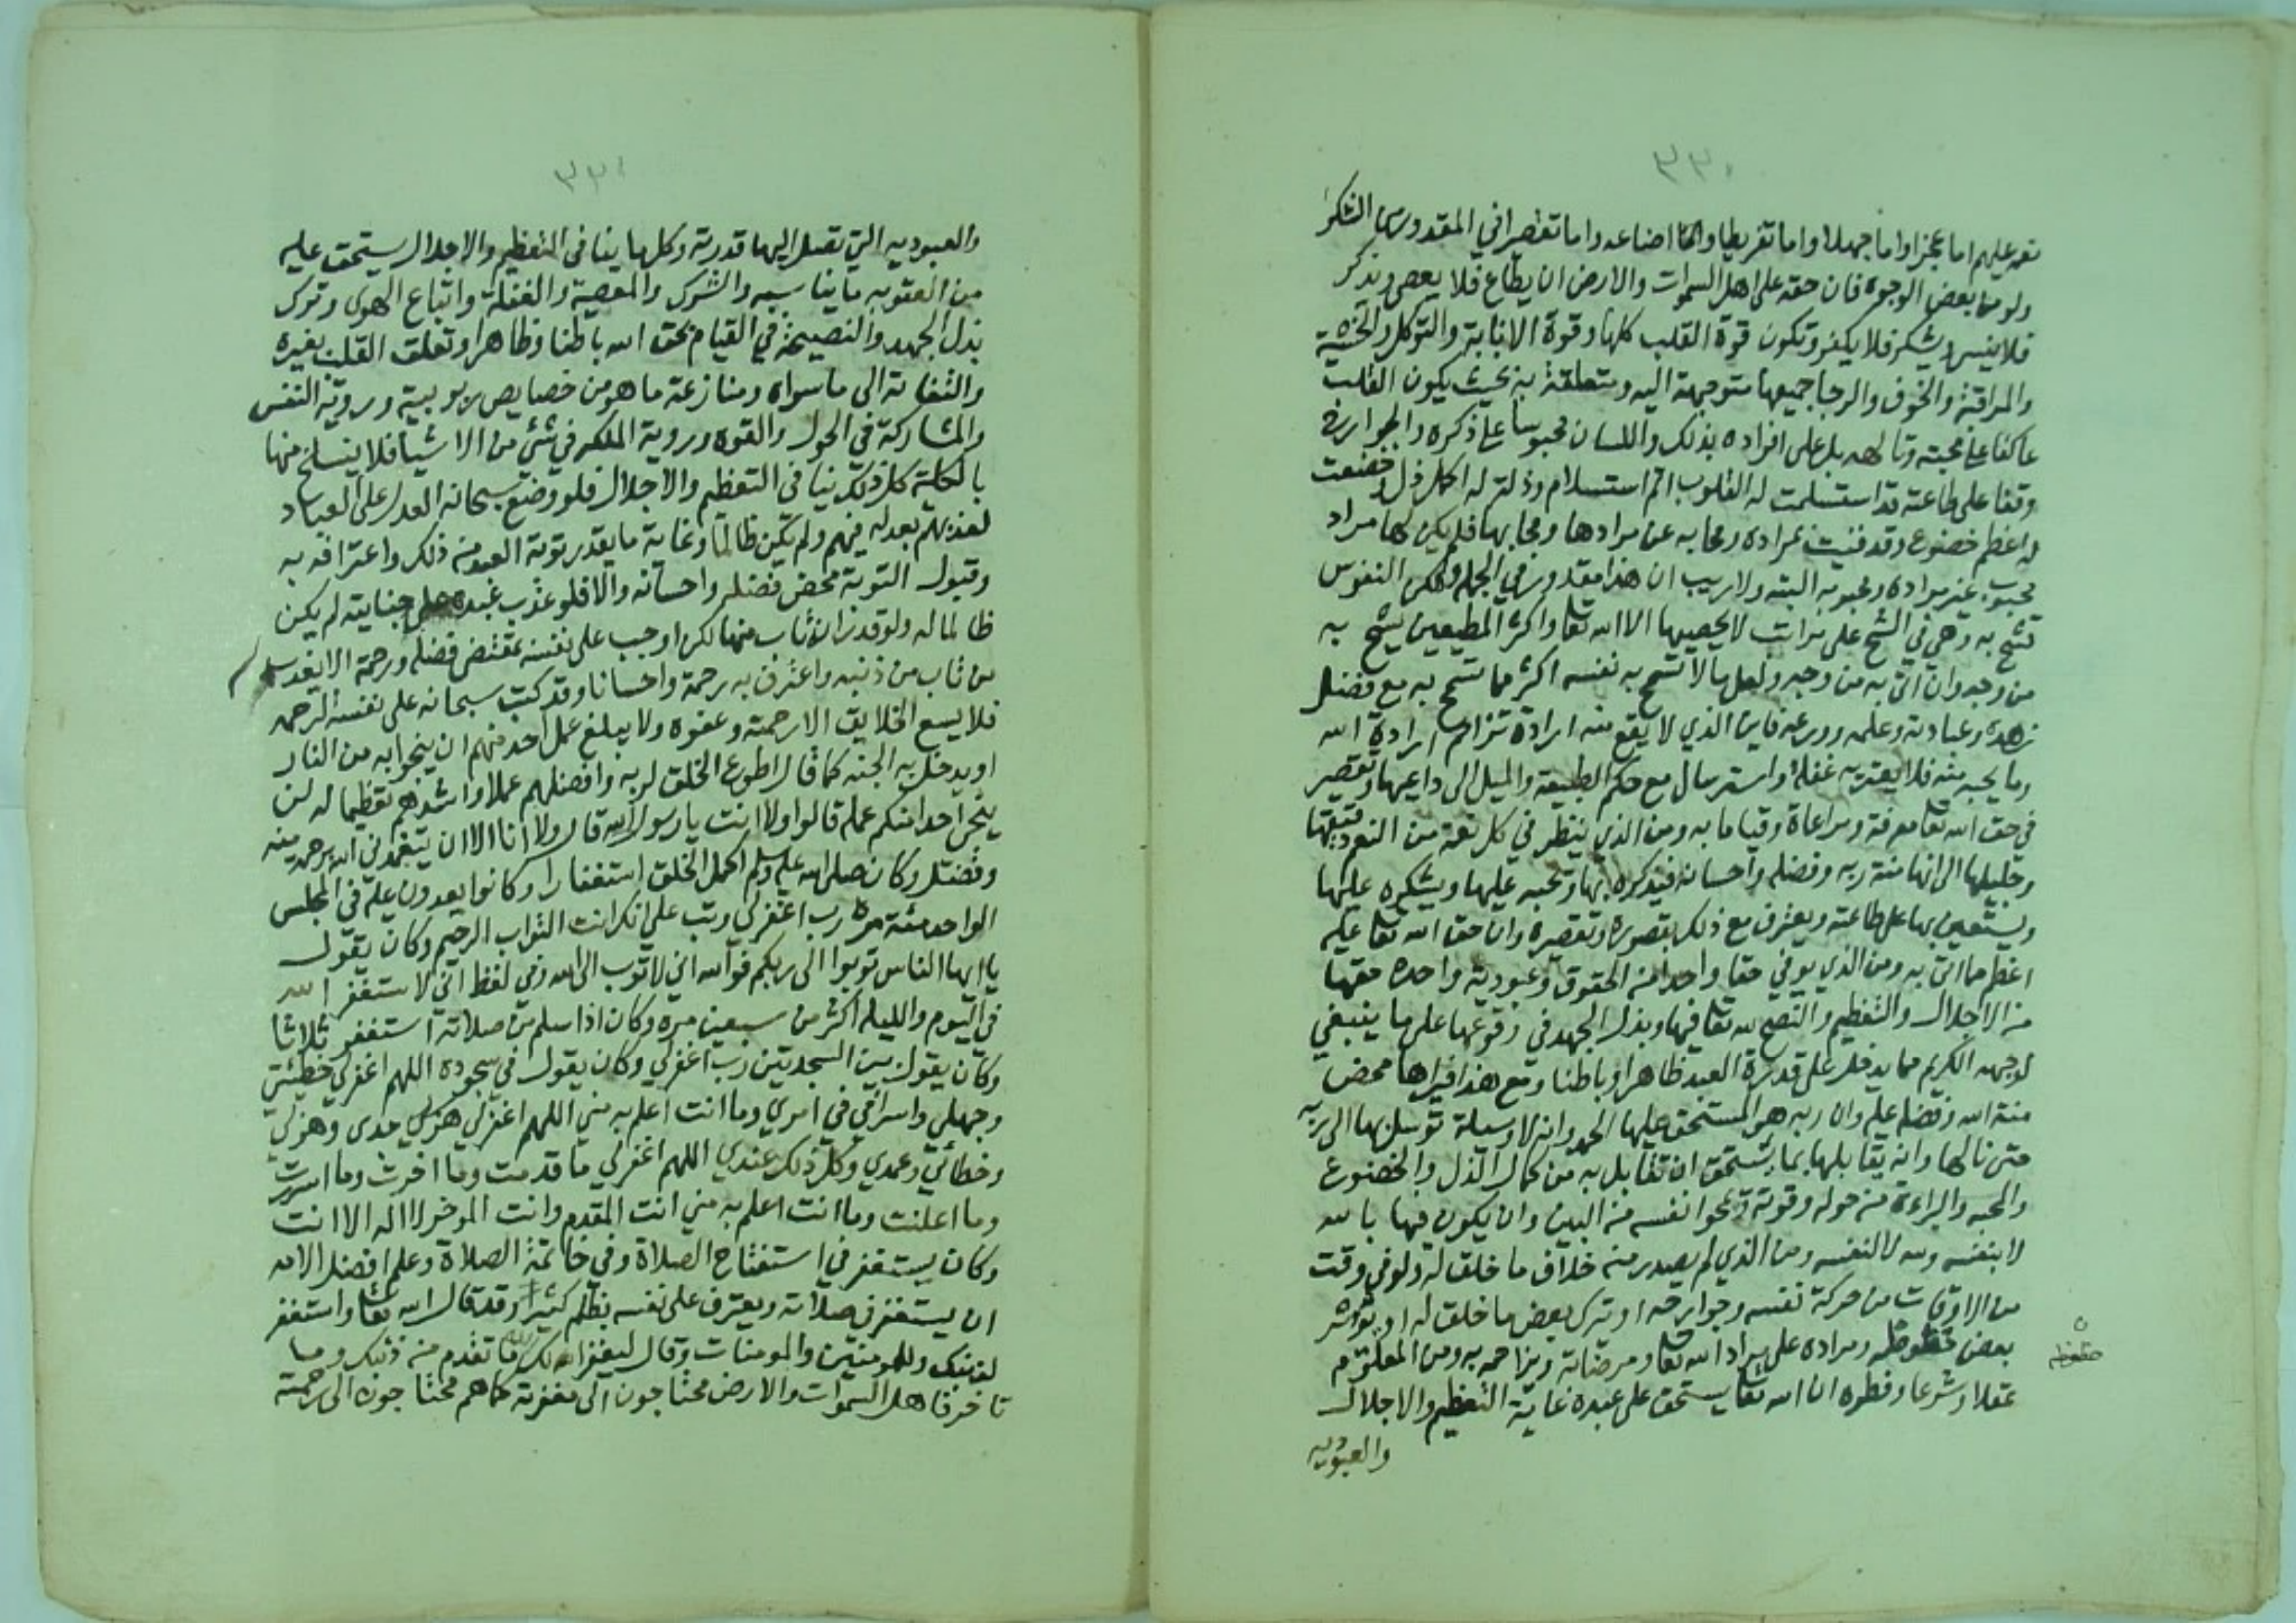 ٣٣٠
نعمه عليهم اما عجزا واما جهلا واما تفريطا واما اضاعه واما تقصيرا في المقدور من الشكر
ولو من بعض الوجوه فان حقه على اهل السموات والارض ان يطاع فلا يعصى ويذكر
فلا ينسى ويشكر فلا يكفر وتكون قوة القلب كلها وقوة الانابة والتوكل والخشية
والمراقبة والخوف والرجا جميعها متوجهة اليه ومتعلقة به بحيث يكون القلب
عاكفا على محبته وتالهه بل على افراده بذلك واللسان محبوسا على ذكره والجوارح
وقفا على طاعته قد استسلمت له القلوب اتم استسلام وذلت له اكمل ذل وخضعت
له اعظم خضوع وقد فنيت بمراده ومحابه عن مرادها ومحابها فلم يكن لها مراد
محبوب غير مراده ومحبوبه البته ولا ريب ان هذا مقدور في الجملة ولكن النفوس
تشح به وهي في الشح على مراتب لا يحصيها الا الله تعا واكثر المطيعين يشح به
من وجه وان اتى به من وجه ولعل ما لا تسمح به نفسه اكثر مما تسمح به مع فضل
زهده وعبادته وعلمه وورعه فاين الذي لا يقع منه ارادة تزاحم ارادة الله
وما يحبه منه فلا يعتريه غفلة واسترسال مع حكم الطبيعة والميل الى داعيها وتقصير
في حق الله تعا معرفة ومراعاة وقياما به ومن الذي ينظر في كل نعمة من النعم دقيقها
وجليلها الى انها منة ربه وفضله واحسانه فيذكره بها ويحبه عليها ويشكره عليها
ويستعين بها على طاعته ويعترف مع ذلك بقصوره وتقصيره وان حق الله تعا عليه
اعظم مما اتى به ومن الذي يوفي حقا واحدا من الحقوق وعبودية واحده حقها
من الاجلال والتعظيم والنصح لله تعا فيها وبذل الجهد في وقوعها على ما ينبغي
لوجهه الكريم مما يدخل على قدرة العبد ظاهرا وباطنا ومع هذا فيراها محض
منة الله وفضله عليه وان ربه هو المستحق عليها الحمد وانه لا وسيلة توسل بها الى ربه
حتى نالها وانه يقابلها بما يستحق ان تقابل به من كمال الذل والخضوع
والمحبه والبراءة من حوله وقوته ويمحو نفسه من البين وان يكون فيها بالله
لا بنفسه ولله لا لنفسه ومن الذي لم يصدر منه خلاف ما خلق له ولو في وقت
من الاوقات من حركة نفسه وجوارحه او ترك بعض ما خلق له او يوثر
بعض حظوظه ومراده على مراد الله تعا ومرضاته ويزاحمه به ومن المعلوم
حظوظه
عقلا وشرعا وفطره ان الله تعا يستحق على عبده غاية التعظيم والاجلال
والعبوديه
٣٣١
والعبوديه التي تصل اليها قدرته وكلها ينافى التعظيم والاجلال يستحق عليه
من العقوبه ما يناسبه والشرك والمعصية والغفلة واتباع الهوى وترك
بذل الجهد والنصيحة في القيام بحق الله باطنا وظاهرا وتعلق القلب بغيره
والتفاته الى ما سواه ومنازعة ما هو من خصايص ربوبيته وروية النفس
والمشاركة في الحول والقوه وروية الملكه في شئ من الاشيا فلا ينسلخ منها
بالكلية كل ذلك ينافى التعظيم والاجلال فلو وضع سبحانه العدل على العباد
لعذبهم بعدله فيهم ولم يكن ظالما وغاية ما يقدر توبة العبد من ذلك واعترافه به
وقبول التوبة محض فضله واحسانه والا فلو عذب عبده على جنايته لم يكن
ظالما له ولو قدر انه تاب منها لكن اوجب على نفسه بمقتضى فضله ورحمة الا يعذب
من تاب من ذنبه واعترف به رحمة واحسانا وقد كتب سبحانه على نفسه الرحمه
فلا يسع الخلايق الا رحمته وعفوه ولا يبلغ عمل احد منهم ان ينجو به من النار
او يدخل به الجنه كما قال اطوع الخلق لربه وافضلهم عملا واشدهم تعظيما له لن
ينجى احدا منكم عمله قالوا ولا انت يا رسول الله قال ولا انا الا ان يتغمدني الله برحمه منه
وفضل وكان صلى الله عليه وسلم اكمل الخلق استغفارا وكانوا يعدون عليه في المجلس
الواحد مئة مرة رب اغفر لي وتب علي انك انت التواب الرحيم وكان يقول
يا ايها الناس توبوا الى ربكم فوالله اني لاتوب الى الله وفي لفظ اني لاستغفر الله
في اليوم والليله اكثر من سبعين مره وكان اذا سلم من صلاته استغفر ثلاثا
وكان يقول بين السجدتين رب اغفر لي وكان يقول في سجوده اللهم اغفر لي خطيئتي
وجهلي واسرافي في امري وما انت اعلم به مني اللهم اغفر لي هزلي جدى وهزلي
وخطائي وعمدي وكل ذلك عندي اللهم اغفر لي ما قدمت وما اخرت وما اسررت
وما اعلنت وما انت اعلم به مني انت المقدم وانت الموخر لا اله الا انت
وكان يستغفر في استفتاح الصلاة وفي خاتمة الصلاة وعلم افضل الامه
ان يستغفر في صلاته ويعترف على نفسه بظلم كثير وقد قال الله تعا واستغفر
لذنبك وللمومنين والمومنات وقال ليغفر لك الله ما تقدم من ذنبك وما
تاخر فاهل السموات والارض محتاجون الى مغفرته كما هم محتاجون الى رحمته